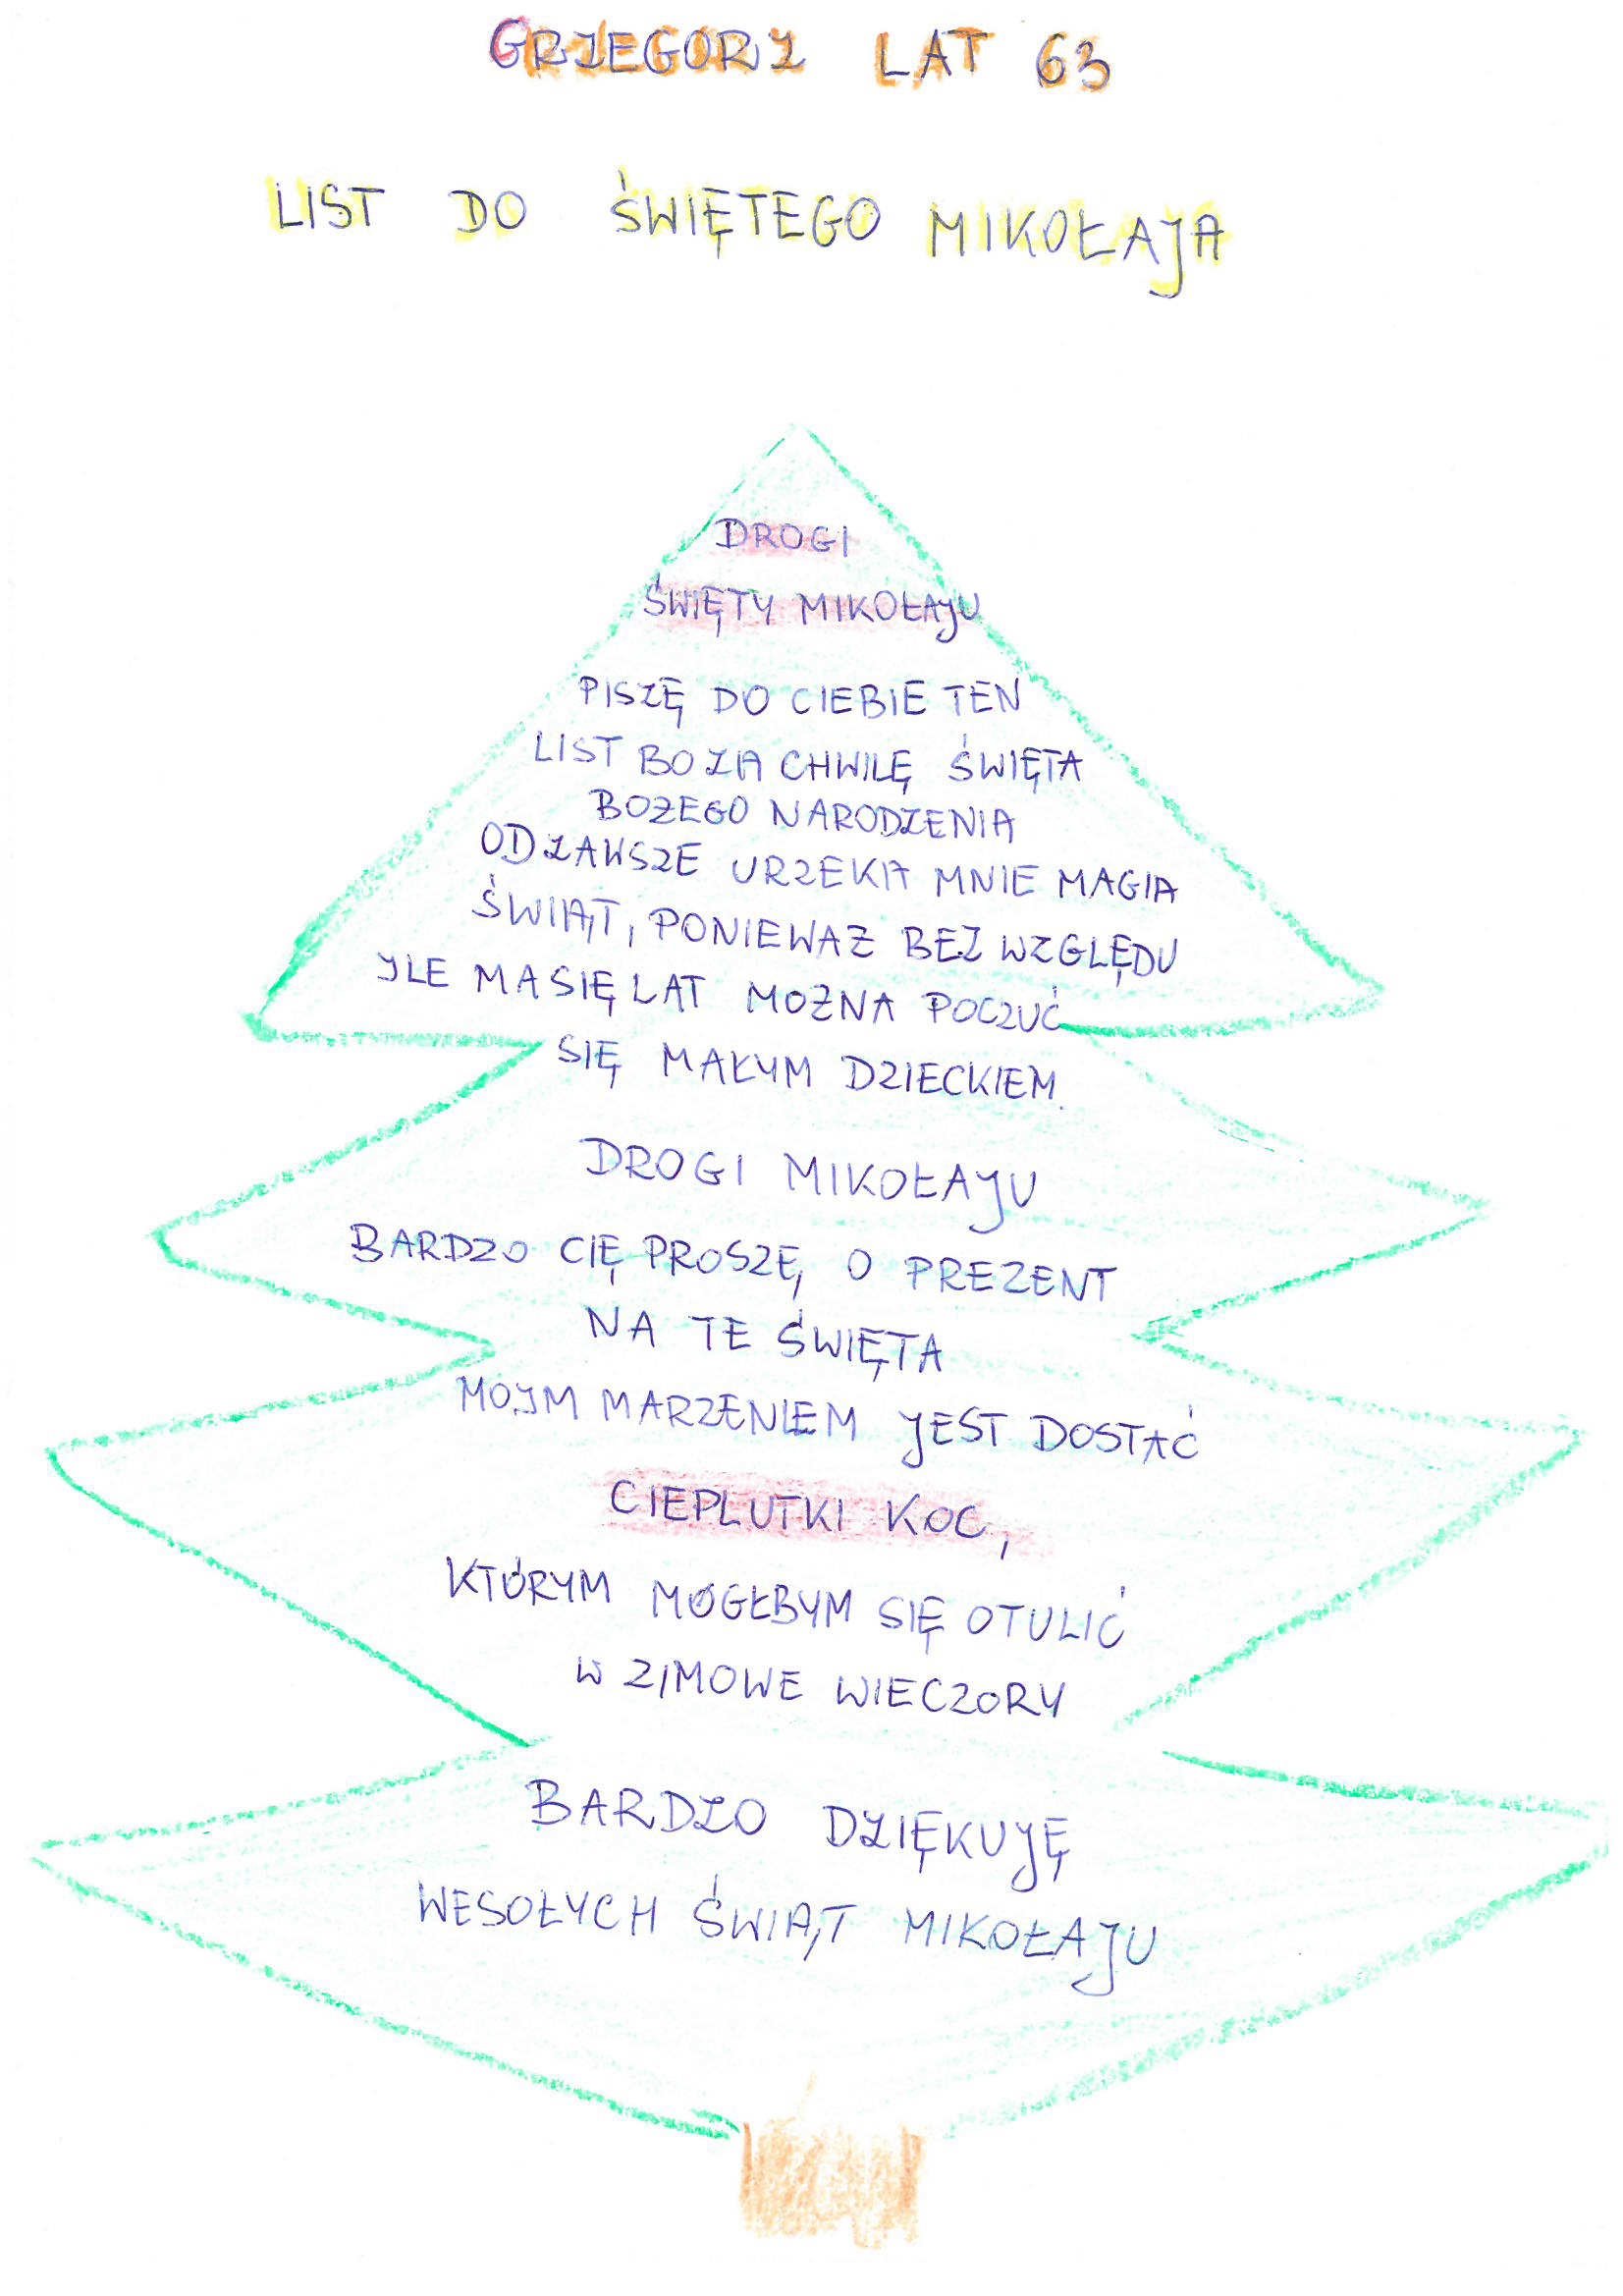 GRZEGORZ LAT 63
LIST DO ŚWIĘTEGO MIKOŁAJA
DROGI
ŚWIĘTY MIKOŁAJU
PISZĘ DO CIEBIE TEN
LIST BO ZA CHWILĘ ŚWIĘTA
BOŻEGO NARODZENIA
OD ZAWSZE URZEKA MNIE MAGIA
ŚWIĄT, PONIEWAŻ BEZ WZGLĘDU
JLE MA SIĘ LAT MOŻNA POCZUĆ
SIĘ MAŁYM DZIECKIEM.
DROGI MIKOŁAJU
BARDZO CIĘ PROSZĘ, O PREZENT
NA TE ŚWIĘTA
MOJM MARZENIEM JEST DOSTAĆ
CIEPLUTKI KOC,
KTÓRYM MÓGŁBYM SIĘ OTULIĆ
W ZIMOWE WIECZORY
BARDZO DZIĘKUJĘ
WESOŁYCH ŚWIĄT MIKOŁAJU